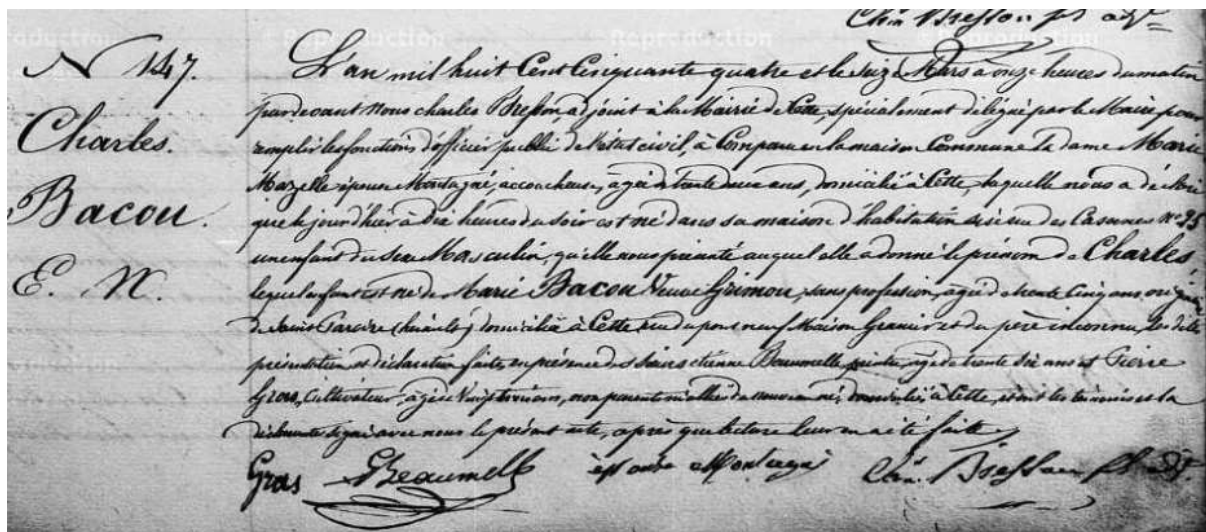 Chn Bresson fs adjt
N 147.
Charles.
Bacou.
E. N.
L'an mil huit Cent Cinquante quatre et le seize Mars à onze heures du matin
pardevant nous charles Bresson adjoint à la Mairie de Cette, spécialement délégué par le Maire pour
remplir les fonctions d'officier public de l'état civil, à Comparu en la maison Commune la dame Marie
Mazelle épouse Montagné, accoucheuse, agée de trente deux ans, domiciliée à Cette, laquelle nous a déclaré
que le jour d'hier à dix heures du soir est né dans sa maison d'habitation sise rue des Casernes no 25
un enfant du sexe Masculin, qu'elle nous présenté auquel elle a donné le prénom de Charles,
lequel enfant est né de Marie Bacou Veuve Grimou, sans profession, agée de trente Cinq ans,
de domiciliée à Cette, rue du pont neuf Maison Granier et du père inconnu, les dites
présentation et déclaration faites en présence des sieurs etienne Beaumelle, agé de trente six ans et Pierre
Gros, Cultivateur, agé de Vingt trois ans, non parents ni alliés du nouveau né, domiciliés à Cette, et ont les témoins et la
déclarante signé avec nous le présent acte, après que lecture leur en a été faite.
Gros EBeaumelle épouse Montagné Chn. Bresson fs adjt.